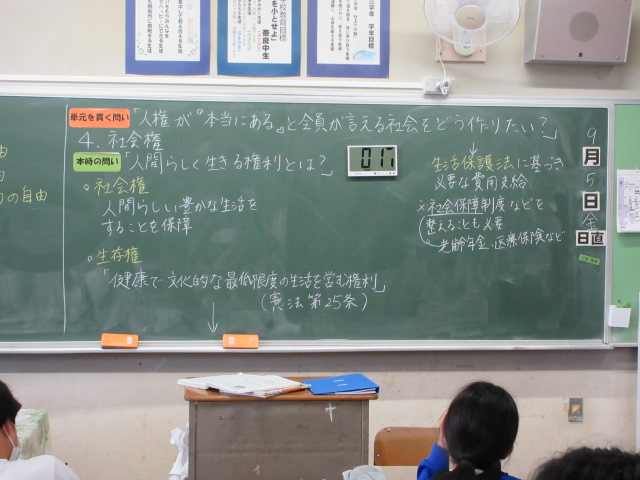 学校教育目標
を小とせよ」
奈良中生
三学年 学年目標
由
の自由
単元を貫く問い
「人権が『本当にある。』と全員が言える社会をどう作りたい？」
4. 社会権
本時の問い
「人間らしく生きる権利とは？」
。社会権
人間らしい豊かな生活を
することを保障
。生存権
「健康で文化的な最低限度の生活を営む権利」
（憲法第25条）
↓
017
↓
生活保護法に基づき
必要な費用支給
※社会保障制度などを
整えることも必要
老齢年金、医療保険など
9
月
5
日
金
日直